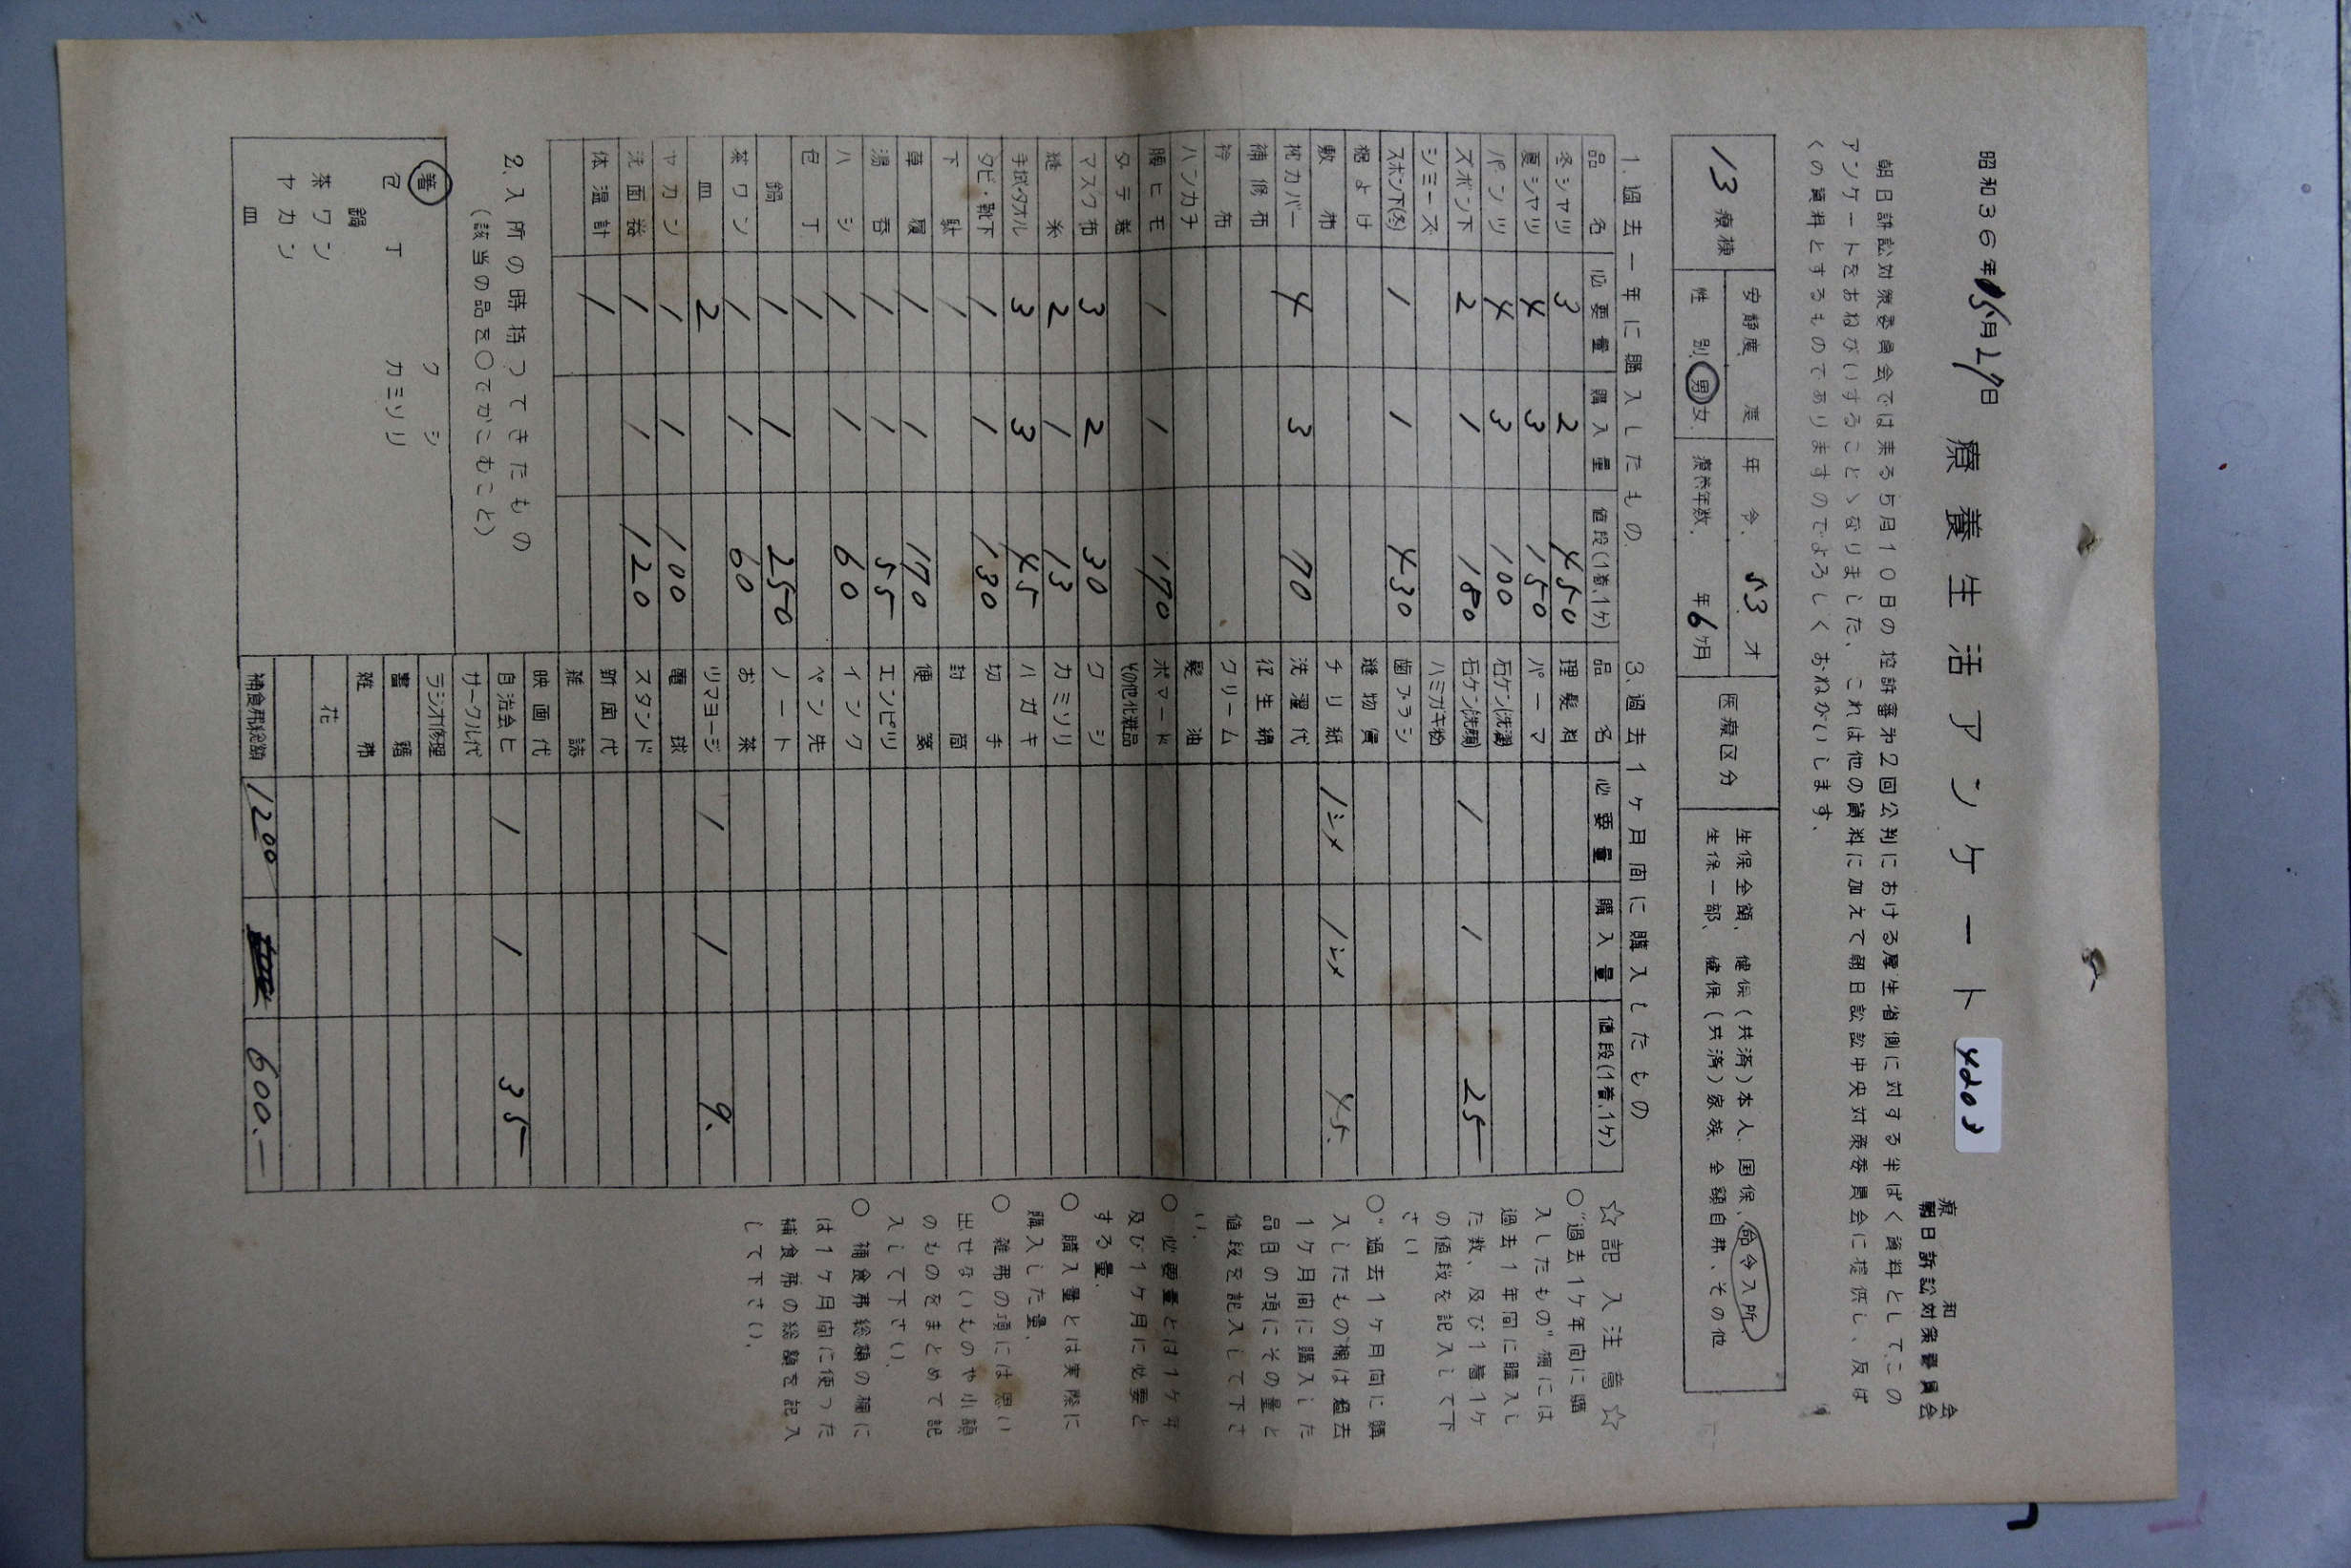 昭和36年5月27日
療養生活アンケート
4203
療和会
朝日訴訟対策委員会
朝日訴訟対策委員会では来る5月10日の控訴審第2回公判における厚生省側に対する半ばく資料としてこの
アンケートをおねがいすることゝなりました、これは他の資料に加えて朝日訟訟中央対策委員会に提供し、反ば
くの資料とするものでありますのでよろしくおねがいします、
13療棟 安静度 度 年令、53才 医療区分 生保全額、健保(共済)本人、国保、命令入所、
性別 男女 療養年数、 年6ヶ月 生保一部、健保(共済)家族、全額自弗、その他
1、過去一年に購入したもの、
品名 必要量 購入量 値段(1着、1ヶ)
冬シャツ 3 2 450
夏シャツ 4 3 150
パンツ 4 3 100
ズボン下 2 1 180
シミーズ
スボン下(冬) 1 1 430
裾よけ
敷布
枕カバー 4 3 70
補修布
袴布
ハンカチ
腰ヒモ 1 1 170
タテ巻
マスク布 3 2 30
縫糸 2 1 13
手拭・タオル 3 3 45
タビ・靴下 1 1 130
下駄 1
草履 1 1 170
湯呑 1 1 55
ハシ 1 1 60
包丁 1
鍋 1 1 250
茶ワン 1 1 60
皿 2
ヤカン 1 1 100
洗面器 1 1 120
体温計 1
2、入所の時持つてきたもの
(該当の品を〇でかこむこと)
箸 クシ
包丁 カミソリ
鍋
茶ワン
ヤカン
皿
3、過去1ヶ月間に購入したもの
品名 必要量 購入量 値段(1着、1ケ)
理髪料
パーマ
石ケン(洗濯)
石ケン(洗顔) 1 1 25
ハミガキ粉
歯ブラシ
縫物賃
チリ紙 1シメ 1シメ 45.
洗濯代
衛生綿
クリーム
髪油
ポマード
その他化粧品
クシ
カミソリ
ハガキ
切手
封筒
便箋
エンピツ
インク
ペン先
ノート
お茶
ツマヨージ 1 1 9.
電球
スタンド
新聞代
雑誌
映画代
自治会ヒ 1 1 35
サークル代
ラジオ修理
書籍
雑弗
花
補食弗総額 1200 600.―
☆記入注意☆
〇"過去1ケ年間に購
入したもの"欄には
過去1年間に購入し
た数、及び1着1ケ
の値段を記入して下
さい
〇"過去1ヶ月間に購
入したもの"欄は過去
1ケ月間に購入した
品目の項にその量と
値段を記入して下さ
い、
〇 必要量とは1ヶ年
及び1ケ月に必要と
する量、
〇 購入量とは実際に
購入した量、
〇 雑弗の項には思い
出せないものや小額
のものをまとめて記
入して下さい、
〇 補食弗総額の欄に
は1ヶ月間に使った
補食弗の総額を記入
して下さい、